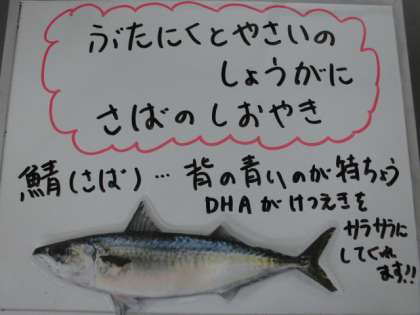 ぶたにくとやさいの
しょうがに
さばのしおやき
鯖(さば)…背の青いのが特ちょう
DHAがけつえきを
サラサラに
してくれ
ます!!